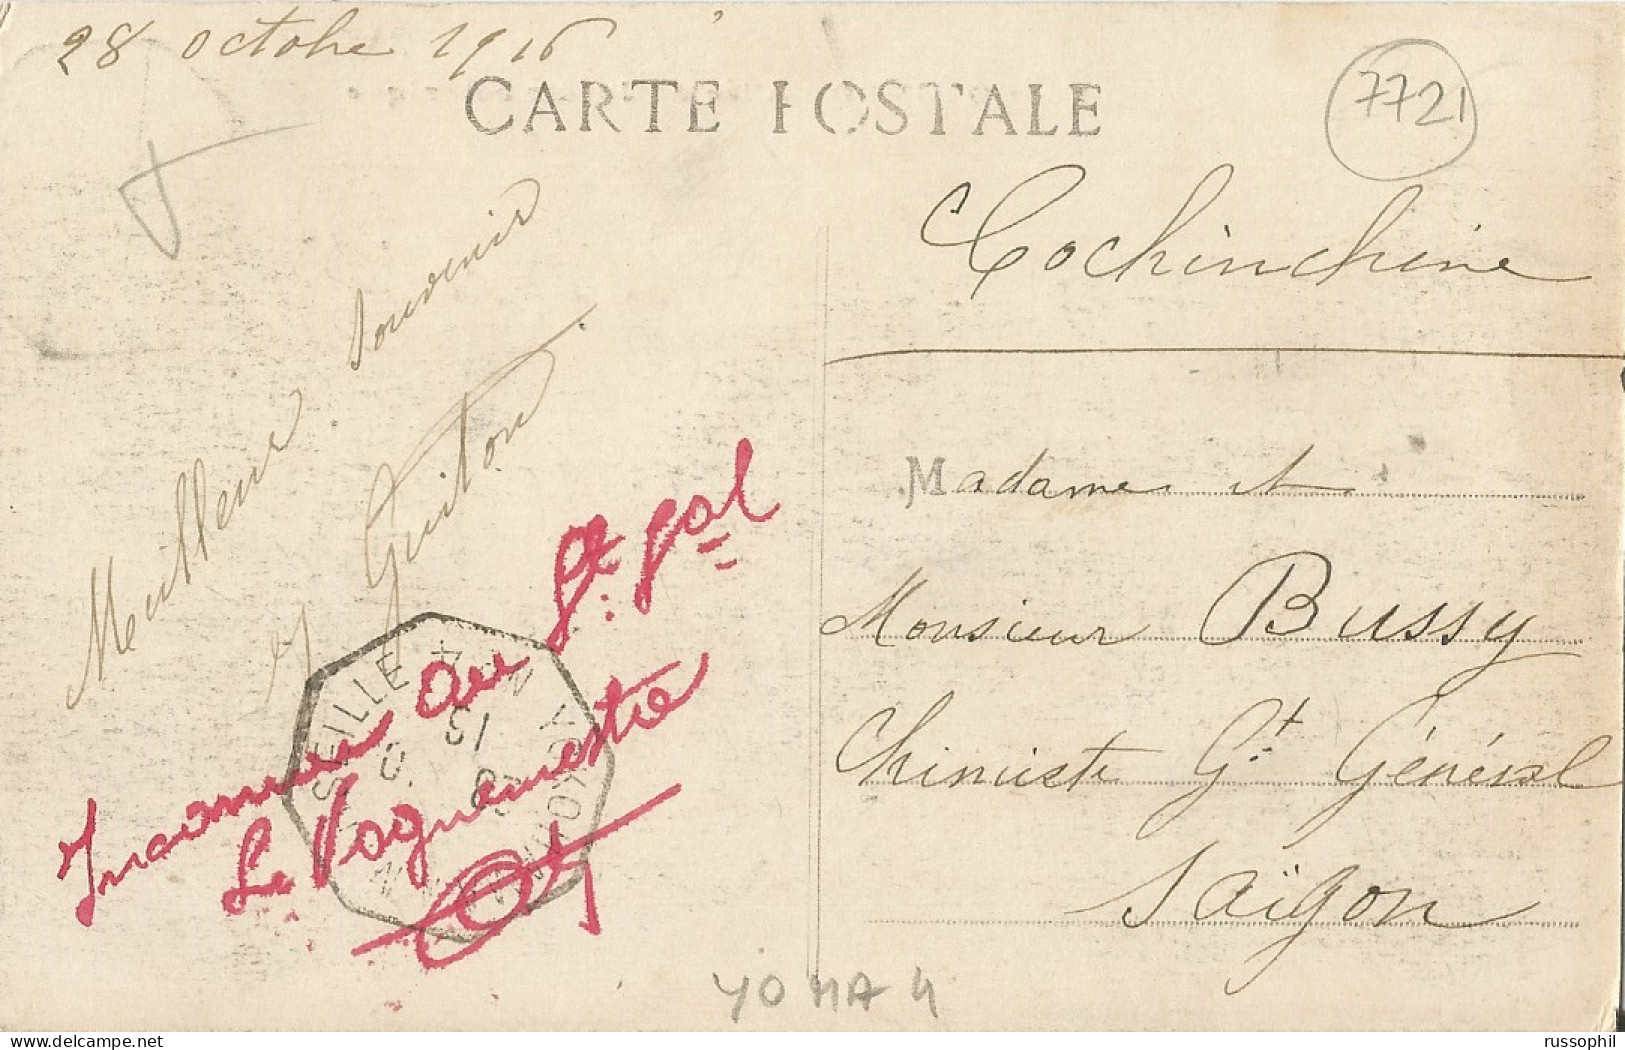 28 octobre 1916
CARTE POSTALE
7721
Cochinchine
Meilleur souvenir
Guiton
Madame et
Monsieur Bussy
Chimiste Gt Général
Saïgon
Inconnu au Gt Gal
Le Vaguemestre
YOKOHAMA
SEILLE
YO MA 4
delcampe.net
russophil